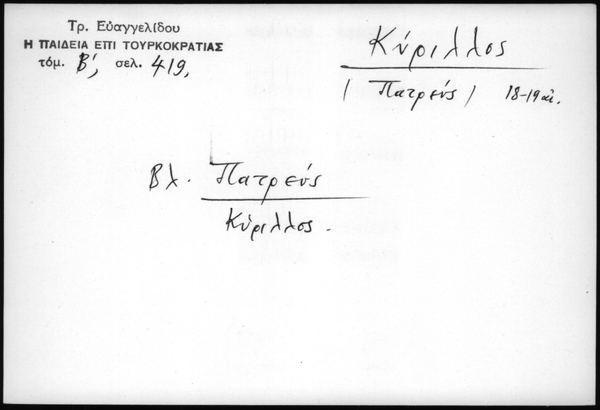 Τρ. Εὐαγγελίδου
Η ΠΑΙΔΕΙΑ ΕΠΙ ΤΟΥΡΚΟΚΡΑΤΙΑΣ
τόμ. Β΄, σελ. 419,
Κύριλλος
/ Πατρεύς / 18-19 αἰ.
Βλ. Πατρεύς
Κύριλλος.